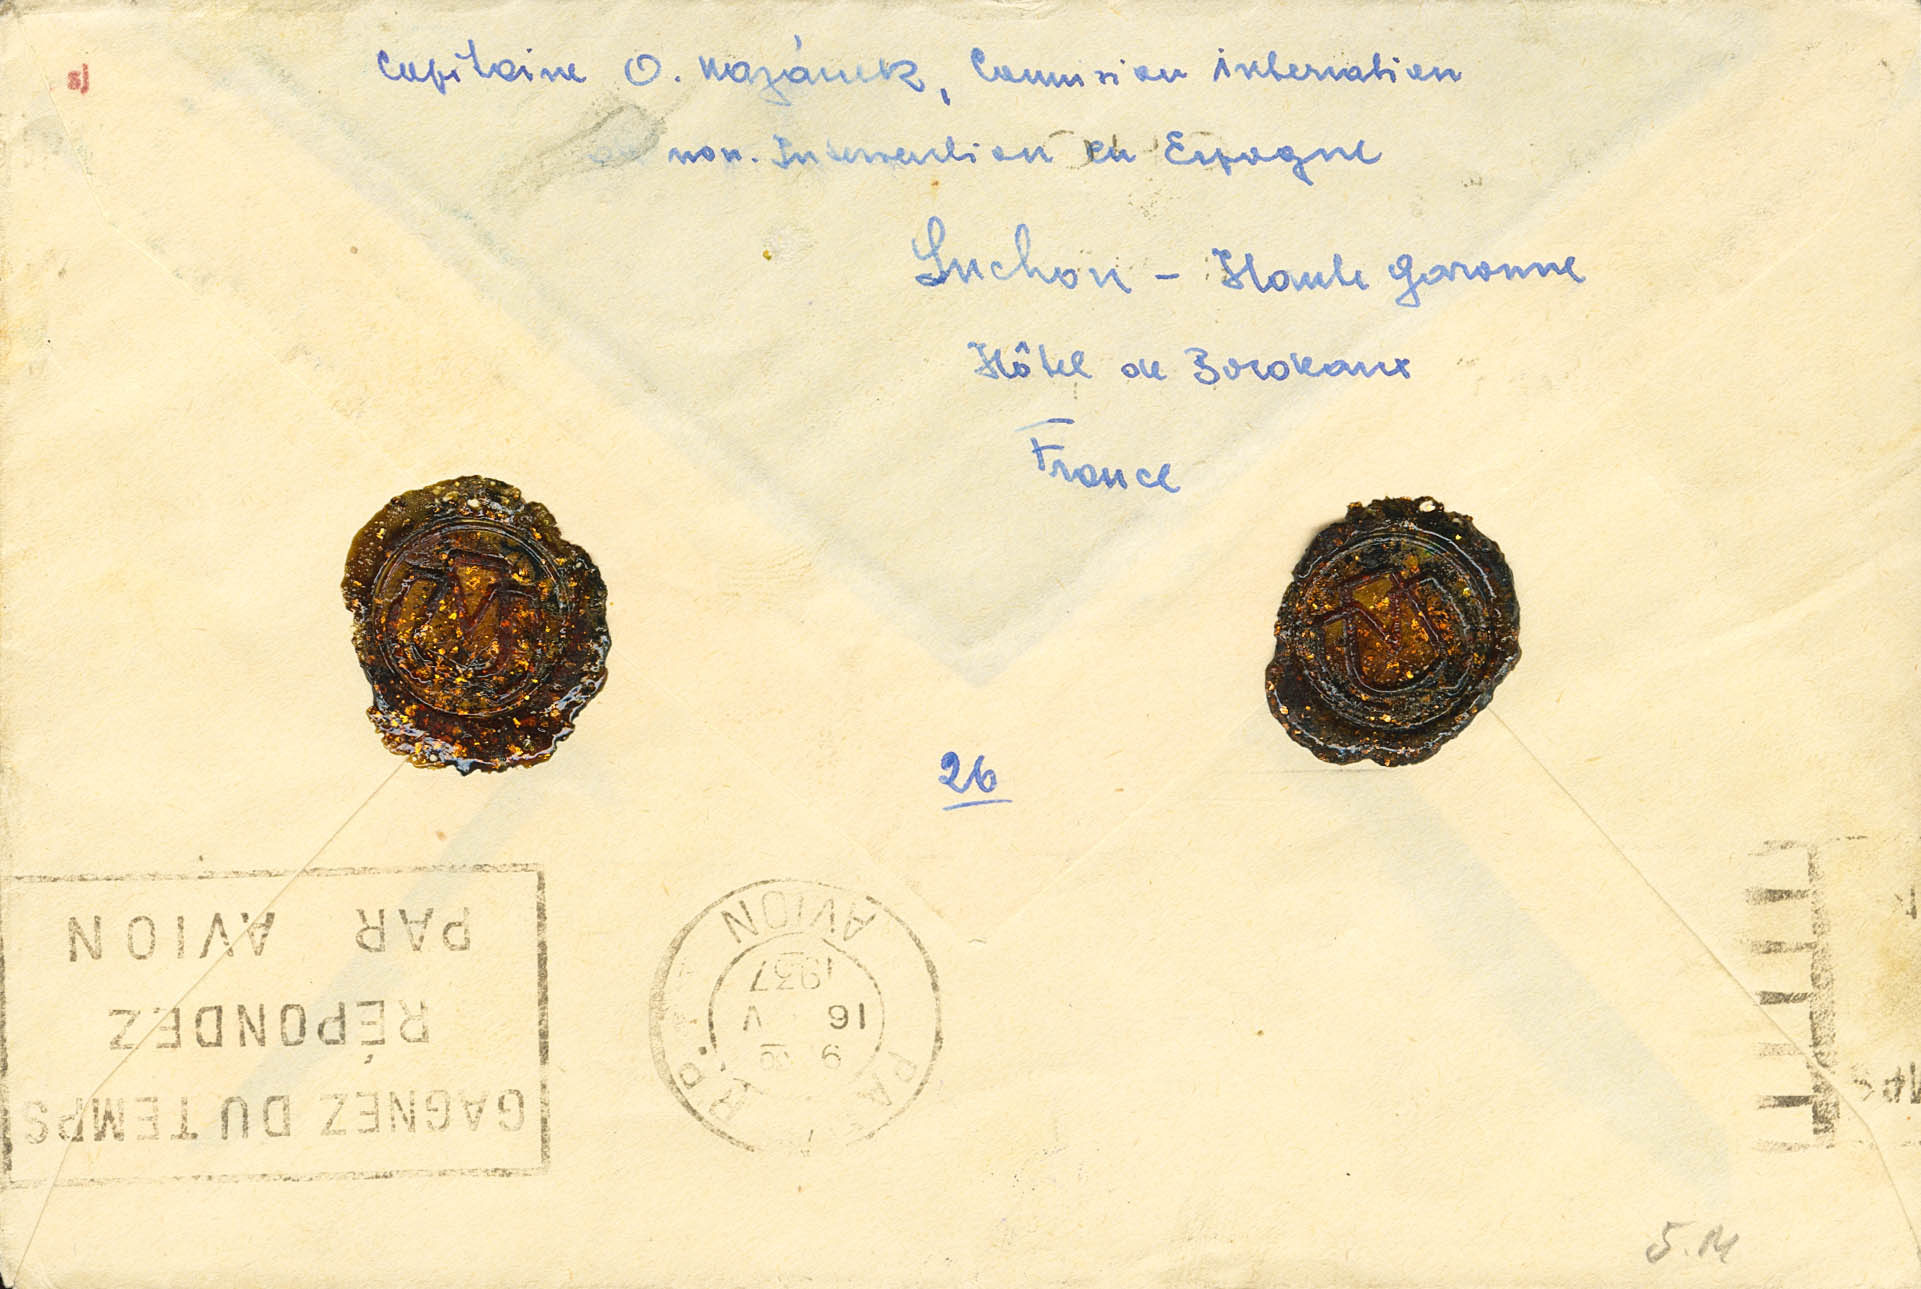 Capitaine O. Kazánek, Commision internation
de non. Intervention en Espagne
Luchon - Haute Garonne
Hôtel de Bordeaux
France
26
GAGNEZ DU TEMPS
RÉPONDEZ
PAR AVION
R.P. AVION
16 V
1937
5.M